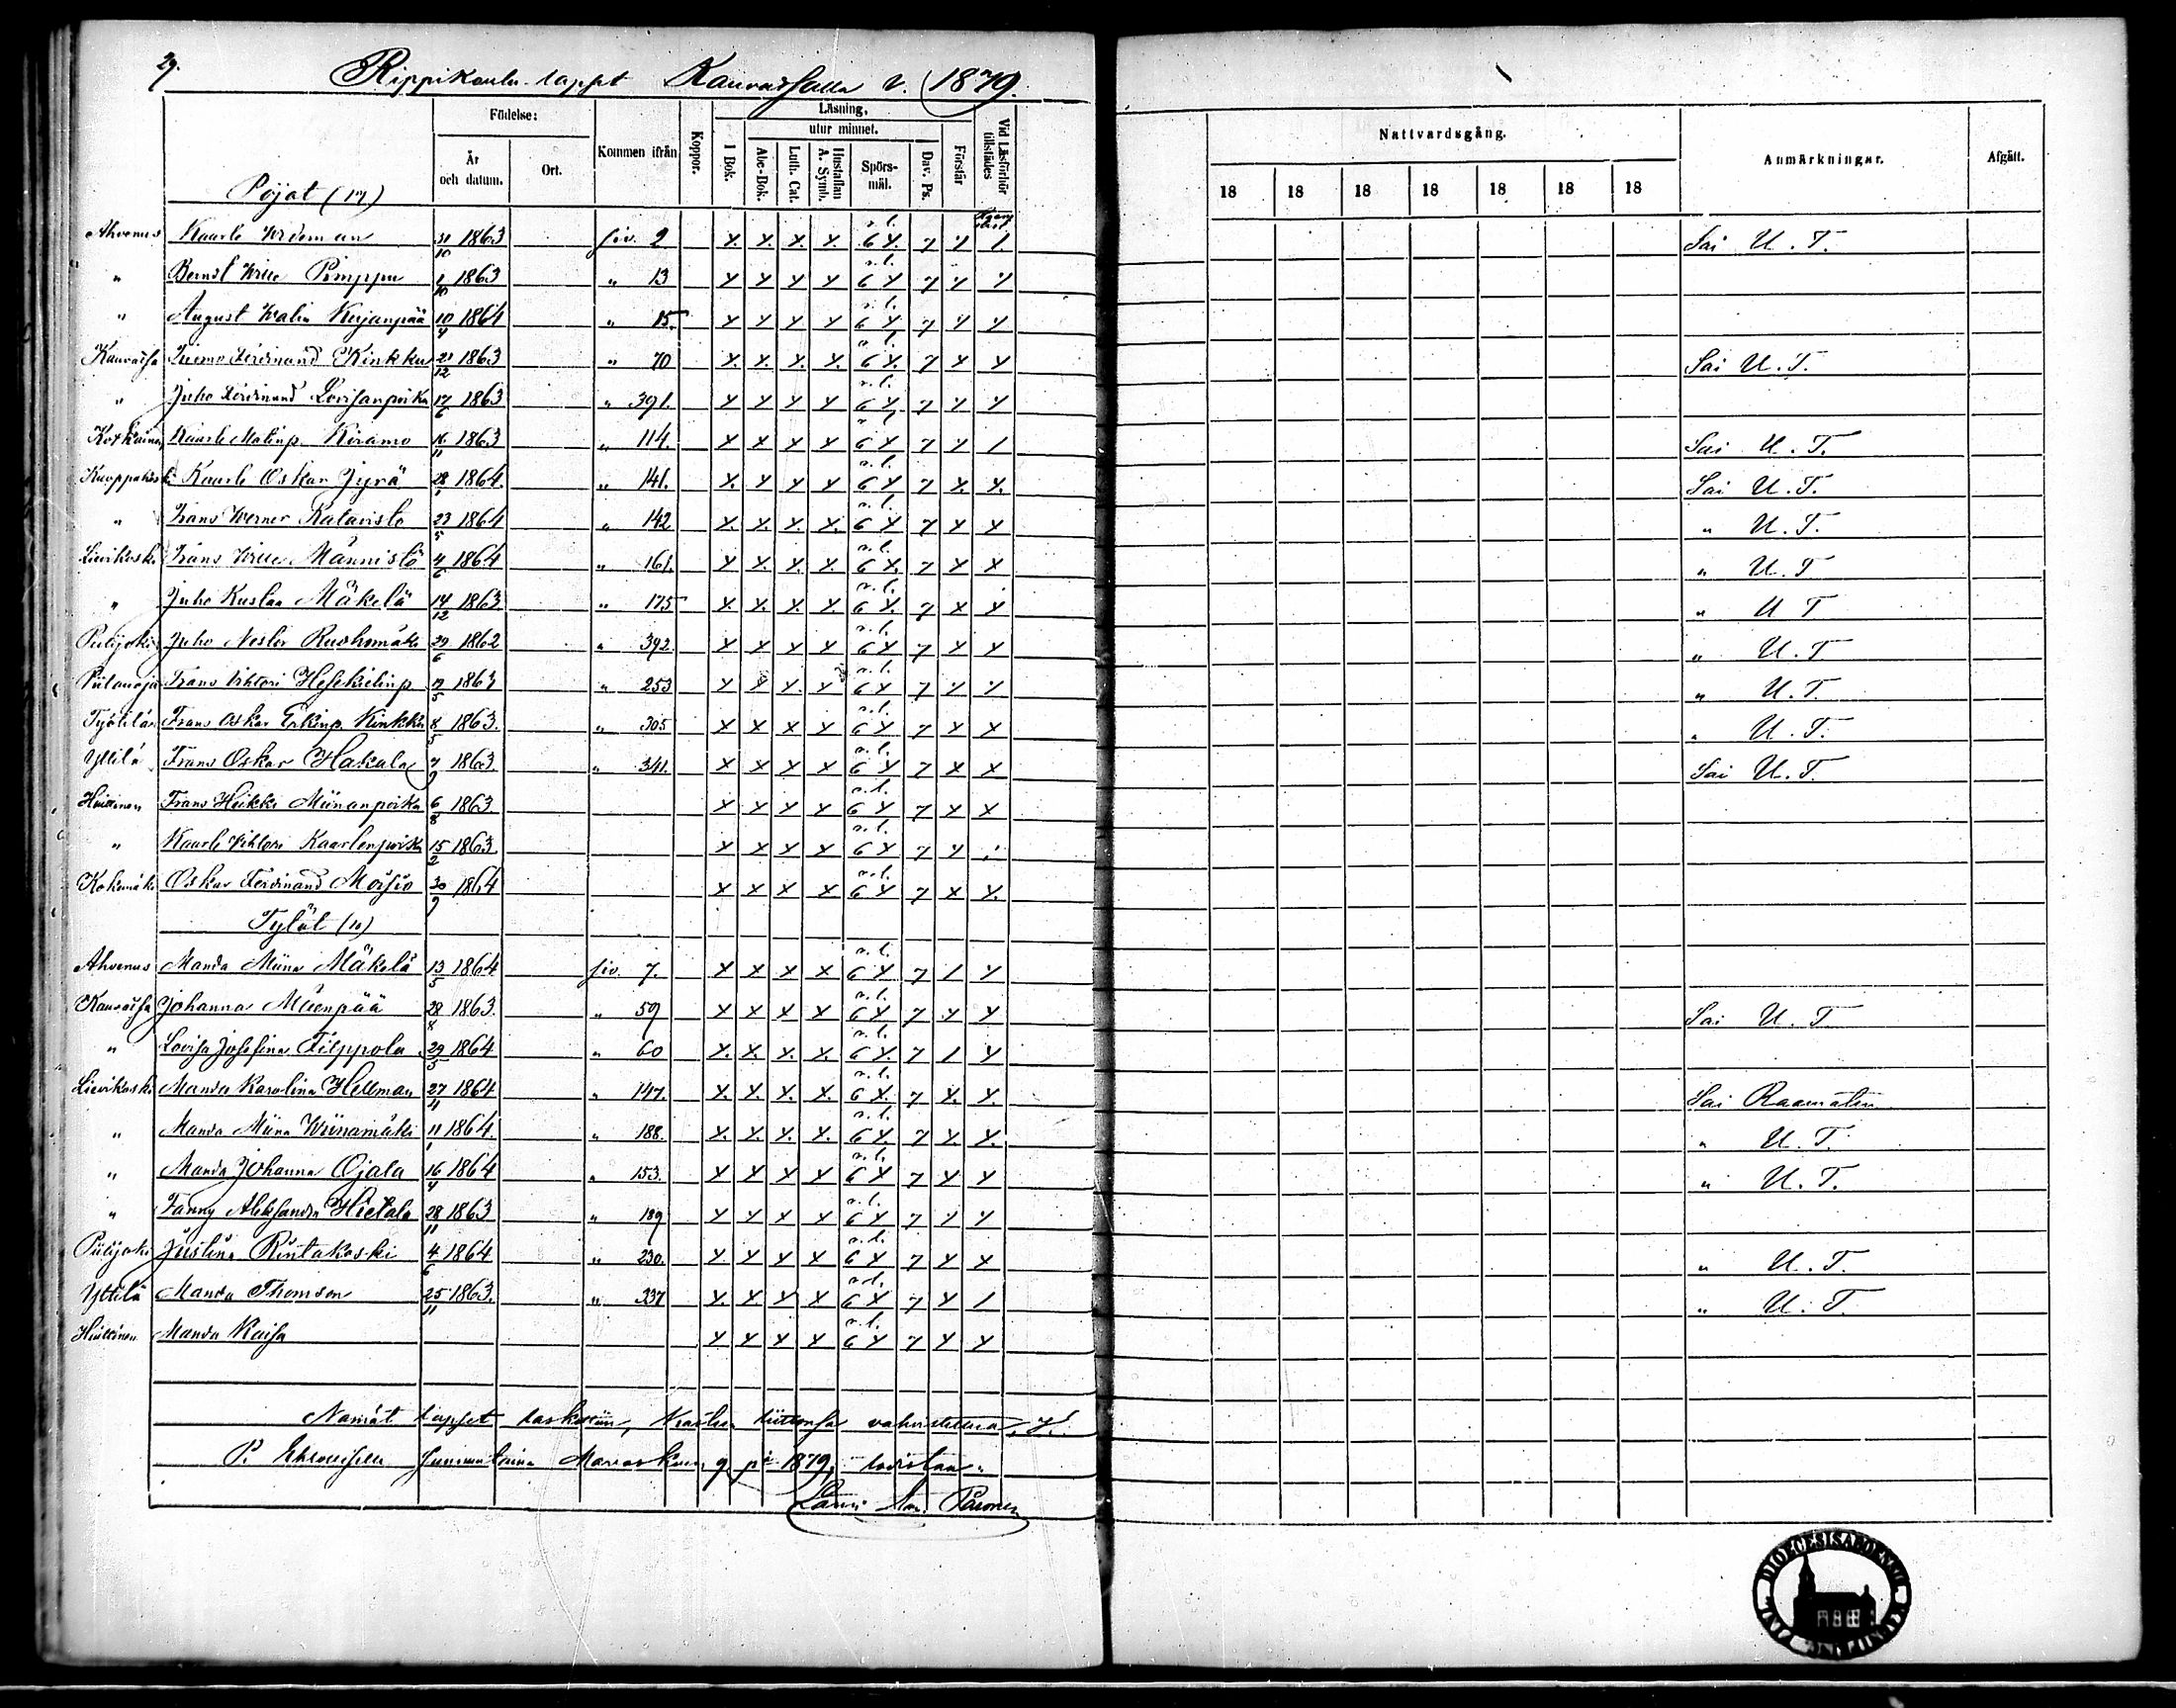 29.
Rippikoulu-lapset Kauvatsalla v. 1879.
Födelse:
År och datum.
Ort.
Kommen ifrån
Koppor.
Läsning,
I Bok.
utur minnet.
Abc-Bok.
Luth. Cat.
Hustaflan A. Symb.
Spörsmål.
Dav. Ps.
Förstår
Vid Läsförhör tillstädes
Nattvardsgång.
18 18 18 18 18 18 18
Anmärkningar.
Afgått.
Pojat (17)
Ahvenus Kaarle Wideman 31/10 1863 siv. 2 x x x x n.l. 6 x 7 x 1 Sai U. T.
" Berndt Pimppu 1/10 1863 " 13 x x x x n.l. 6 x 7 x x
" August Kujanpää 10/4 1864 " 15 x x x x n.l. 6 x 7 x x
Kauvatsa Tuomo Ferdinand Kinkku 21/12 1863 " 70 x x x x n.l. 6 x 7 x x Sai U. T.
" Juho Ferdinand Lovisanpoika 17/6 1863 " 391. x x x x n.l. 6 x 7 x x
Kaarle Matinp. Kiramo 16/11 1863 " 114. x x x x n.l. 6 x 7 x 1 Sai U. T.
Kaarle Oskar Jyrä 28/1 1864. " 141. x x x x n.l. 6 x 7 x x Sai U. T.
" Frans Werner Katavisto 23/5 1864 " 142 x x x x n.l. 6 x 7 x x " U. T.
Lievikoski Frans Männistö 4/6 1864 " 161. x x x x n.l. 6 x 7 x x " U. T
" Juho Kustaa Mäkelä 14/12 1863 " 175 x x x x n.l. 6 x 7 x x " U T
Piilijoki Juho Nestor 29/6 1862 " 392. x x x x n.l. 6 x 7 x x " U. T
Frans Vihtori Hesekielinp. 5 1863 " 253 x x x x n.l. 6 x 7 x x " U. T.
Frans Oskar Erkinp. Kinkku 8/5 1863. " 305 x x x x n.l. 6 x 7 x x " U. T.
Yttilä Frans Oskar Hakala 7/9 1863 " 341. x x x x n.l. 6 x 7 x x Sai U. T.
Huittinen Frans Heikki Miinanpoika 6/8 1863 x x x x n.l. 6 x 7 x x
" Kaarle Vihtori Kaarlenpoika 15/2 1863. x x x x n.l. 6 x 7 x
Kokemäki Oskar Ferdinand Moisio 30/9 1864 x x x x n.l. 6 x 7 x x
Tytöt (10)
Ahvenus Manda Miina Mäkelä 13/5 1864 siv. 7. x x x x n.l. 6 x 7 1 x
Kauvatsa Johanna Mäenpää 28/8 1863. " 59 x x x x n.l. 6 x 7 x x Sai U. T
" Lovisa Josefina Filppola 29/5 1864 " 60 x x x x n.l. 6 x 7 1 x
Lievikoski Manda Karolina Hellman 27/4 1864 " 147. x x x x n.l. 6 x 7 x x Sai Raamatun
" Manda Miina Wiinamäki 11/1 1864. " 188. x x x x n.l. 6 x 7 x x " U. T.
" Manda Johanna Ojala 16/4 1864 " 153. x x x x n.l. 6 x 7 x x " U. T.
" Fanny Aleksandra Hietala 28/11 1863 " 189 x x x x n.l. 6 x 7 x x
Piilijoki Justina Rintakoski 4/6 1864 " 230. x x x x n.l. 6 x 7 x x " U. T.
Yttilä Manda Thomson 25/11 1863. " 337 x x x x n.l. 6 x 7 x 1 " U. T.
Huittinen Manda Kaisa x x x x n.l. 6 x 7 x x
Nämät lapset laskettiin, liittonsa vahvistettua,
P. Ehtoolliselle sunnuntaina Marraskuun 9 pä 1879, todistaa:
Lauri